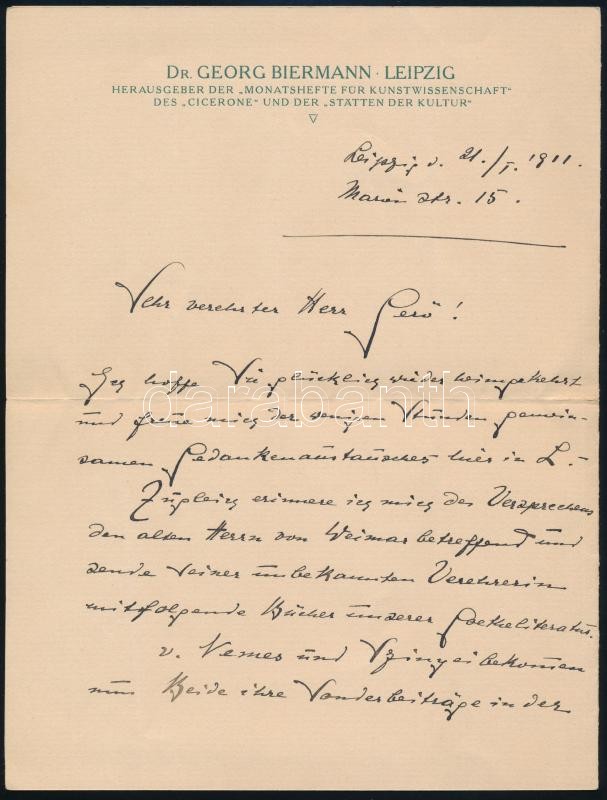 Dr. GEORG BIERMANN · LEIPZIG
HERAUSGEBER DER „MONATSHEFTE FÜR KUNSTWISSENSCHAFT“
DES „CICERONE“ UND DER „STÄTTEN DER KULTUR“
Leipzig d. 21./I. 1911.
Marien str. 15.
Sehr verehrter Herr Gerö!
Ich hoffe Sie glücklich wieder heimgekehrt
und freue mich der wenigen Stunden gemein-
samen Gedankenaustausches hier in L.-
Zugleich erinnere ich mich des Versprechens
den alten Herrn von Weimar betreffend und
sende seiner unbekannten Verehrerin
mitfolgende Bücher unserer Goetheliteratur.
v. Nemes und Szinyei bekommen
nun Beide ihre Sonderbeiträge in der
darabanth